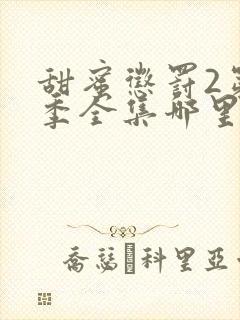 甜蜜懲罰2第
季全集哪里
喬瑟·科里亞